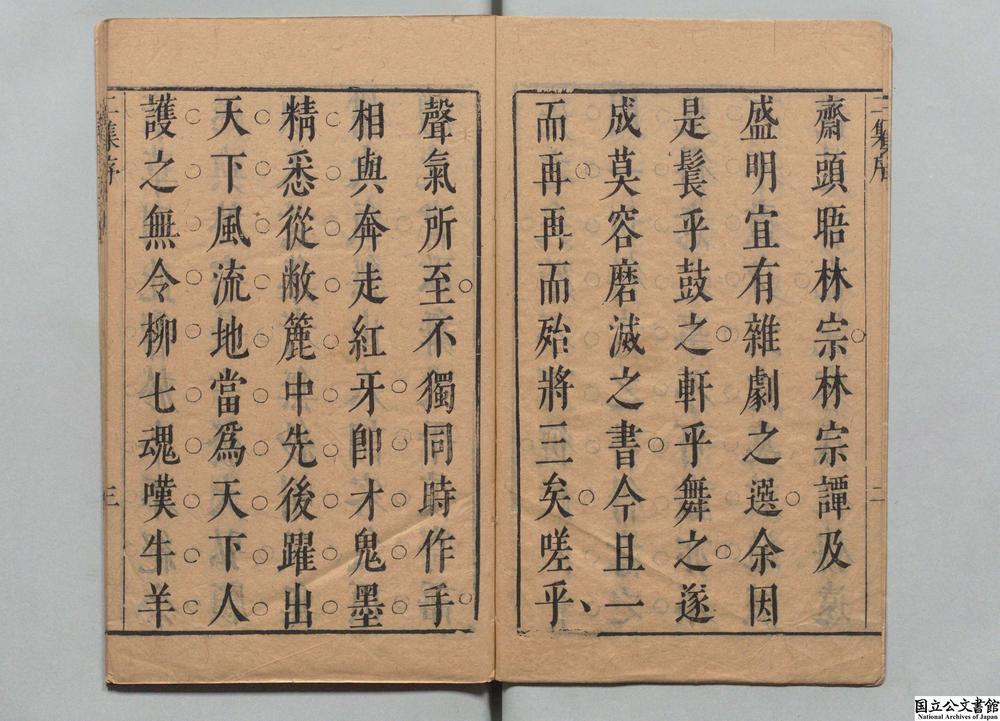 二集序
二
齋頭晤林宗林宗譚及
盛明宜有雜劇之選余因
是鬂乎鼓之軒乎舞之遂
成莫容磨滅之書今且一
而再再而殆將三矣嗟乎、
聲氣所至不獨同時作手
相與奔走紅牙卽才鬼墨
精悉從敝簏中先後躍出
天下風流地當爲天下人
護之無令柳七魂嘆牛羊
二集序
三
国立公文書館
National Archives of Japan